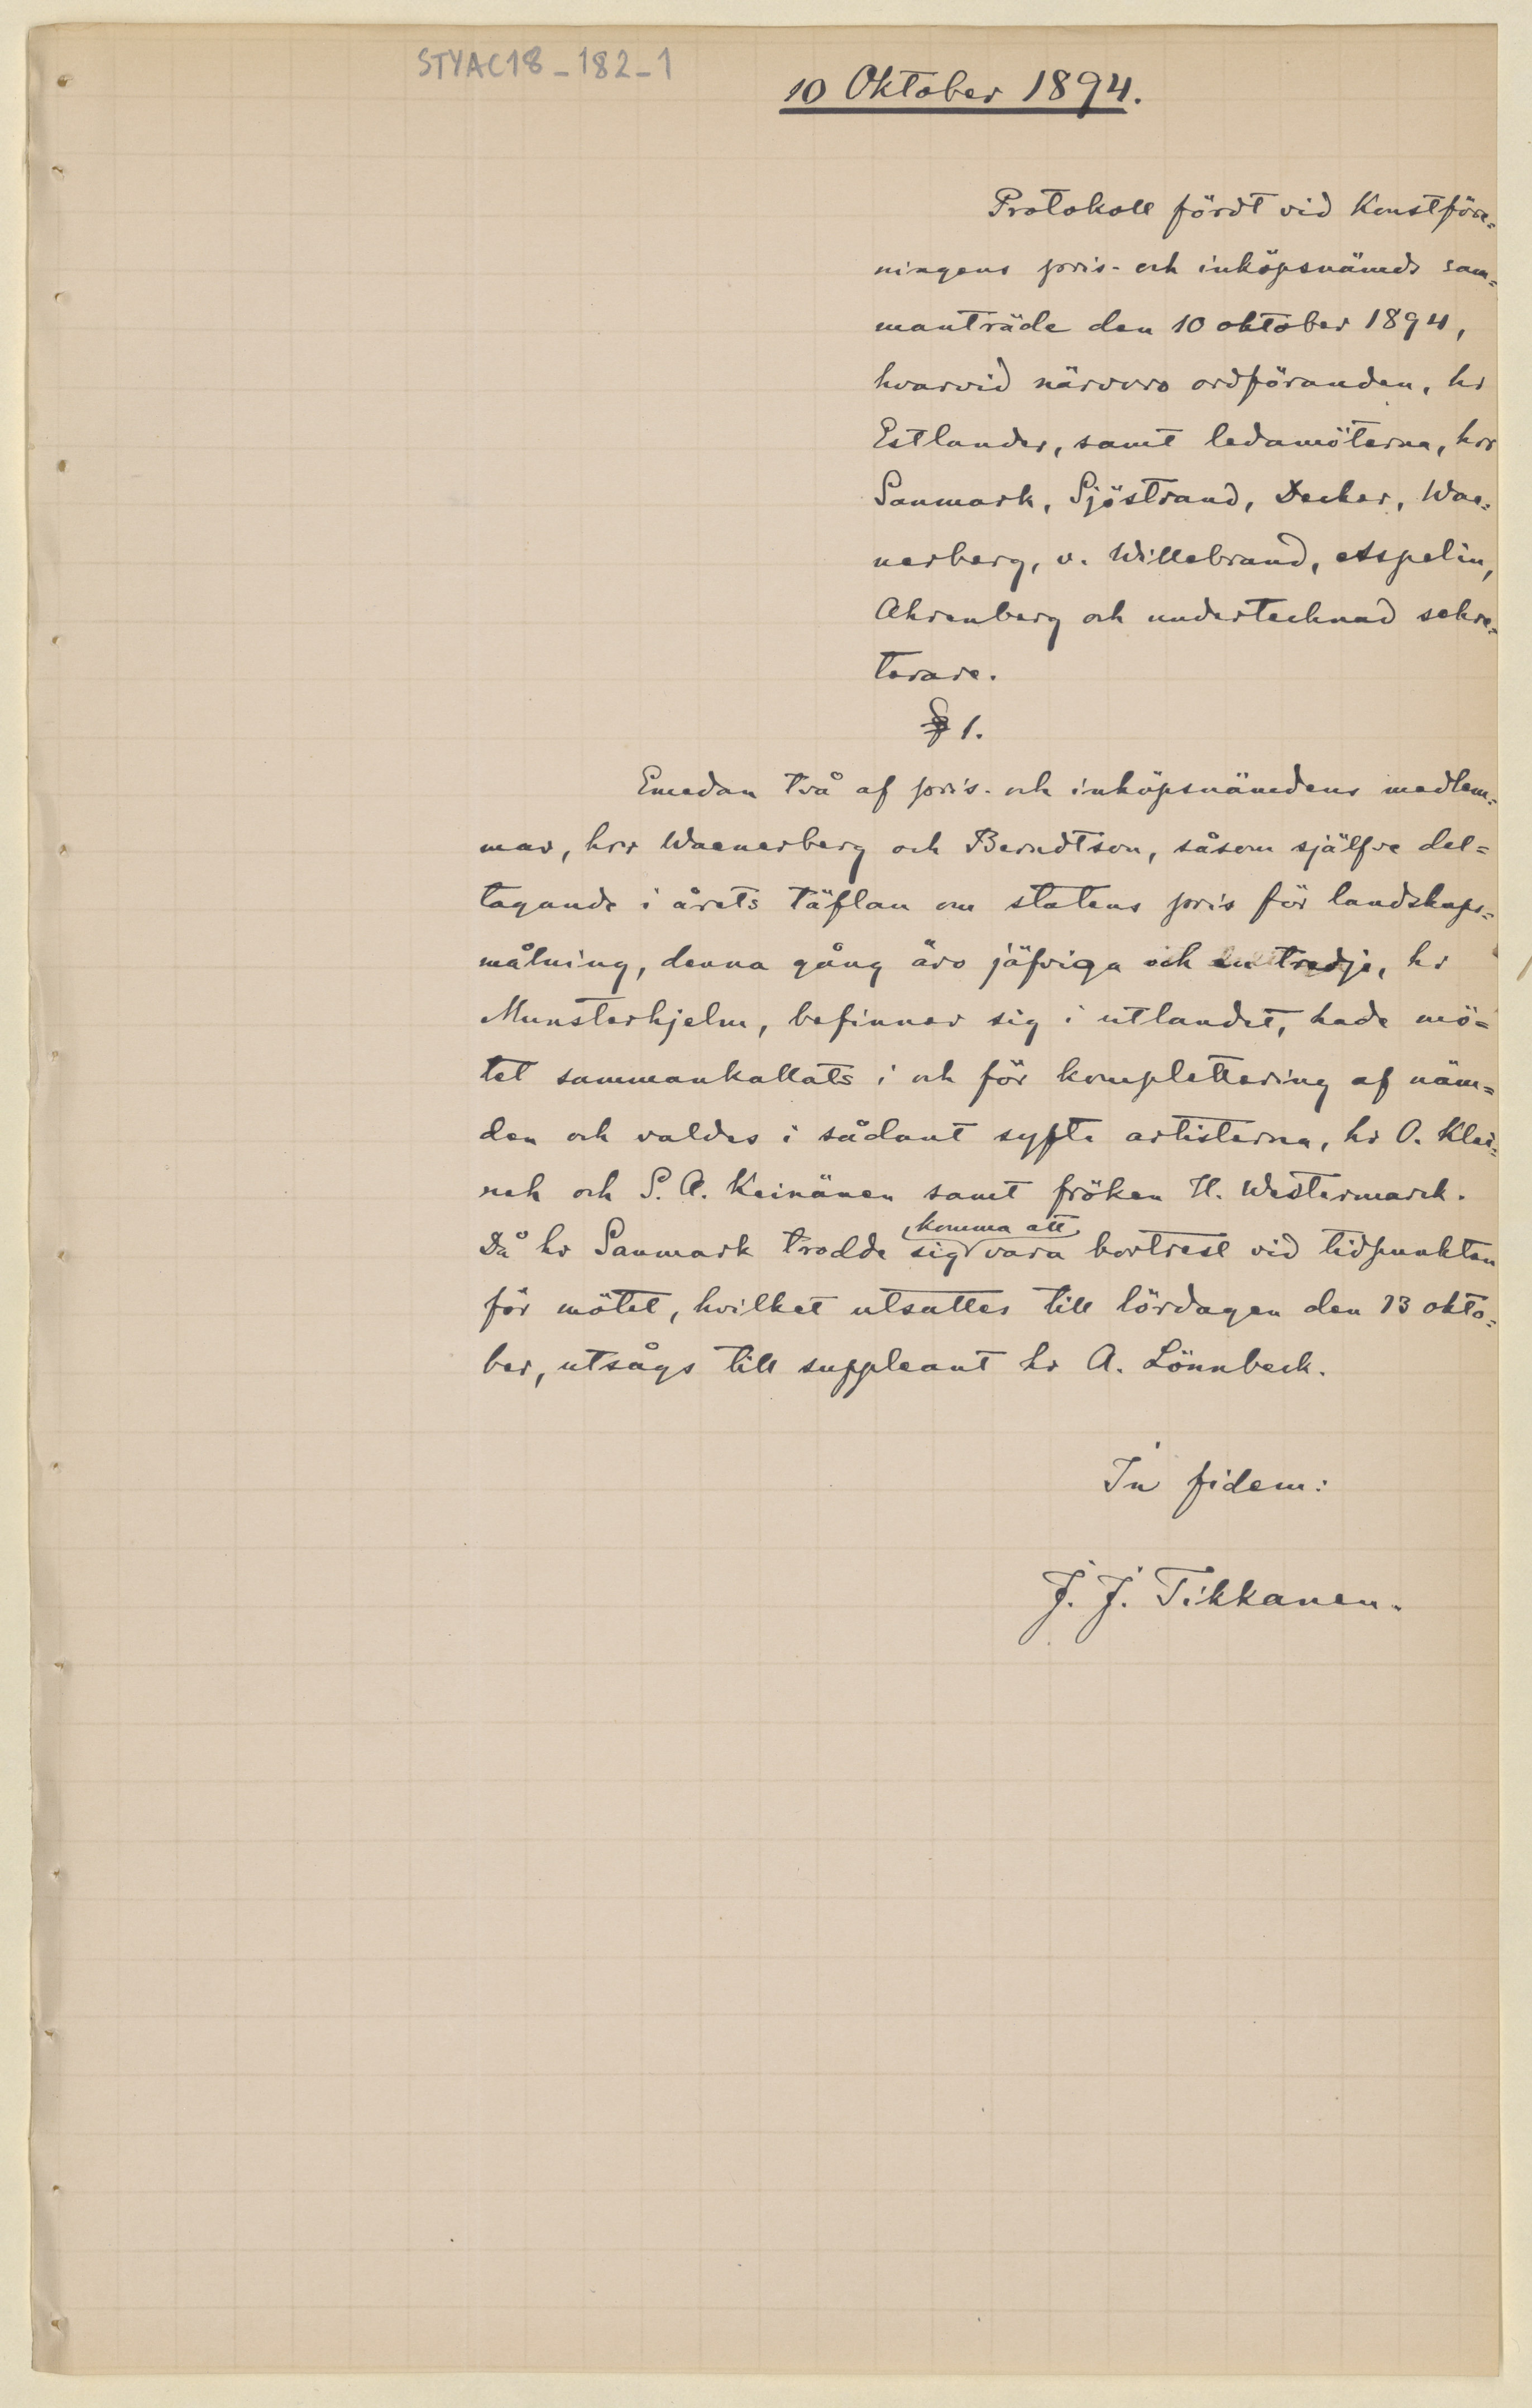 STYAC18_182_1
10 Oktober 1894.
Protokoll fördt vid Konstföre=
ningens pris- och inköpsnämds sam=
manträde den 10 oktober 1894,
hvarvid närvoro ordföranden, hr
Estlander, samt ledamöterna, hrr
Sanmark, Sjöstrand, Decker, Wae=
nerberg, v. Willebrand, Aspelin,
Ahrenberg och undertecknad sekre=
terare.
§ 1.
Emedan två af pris- och inköpsnämdens medlem=
mar, hrr Waenerberg och Berndtson, såsom själfve del=
tagande i årets täflan om statens pris för landskaps=
målning, denna gång äro jäfviga och en tredje, hr
Munsterhjelm, befinner sig i utlandet, hade mö=
tet sammankallats i och för komplettering af näm=
den och valdes i sådant syfte artisterna, hr O. Klei=
neh och S. A. Keinänen samt fröken H. Westermarck.
komma att
Då hr Sanmark trodde sig vara bortrest vid tidpunkten
för mötet, hvilket utsattes till lördagen den 13 okto=
ber, utsågs till suppleant hr A. Lönnbeck.
In fidem:
J. J. Tikkanen.